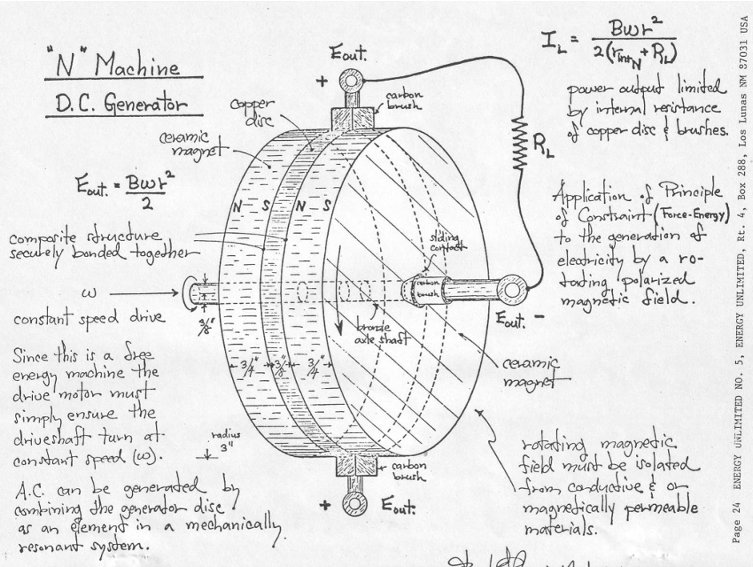 "N" Machine
D.C. Generator
Eout. = Bωr²/2
composite structure
securely bonded together
ω
constant speed drive
Since this is a free
energy machine the
drive motor must
simply ensure the
driveshaft turn at
constant speed (ω).
A.C. can be generated by
combining the generator disc
as an element in a mechanically
resonant system.
Eout.
+
carbon
brush
copper
disc
ceramic
magnet
N - S
N - S
sliding
contact
carbon
brush
bronze
axle shaft
3/8"
3/4"
3/8"
3/4"
radius
3"
RL
Eout. -
ceramic
magnet
carbon
brush
+
Eout.
IL = Bωr²/2(rintN + RL)
power output limited
by internal resistance
of copper disc & brushes.
Application of Principle
of Constraint (Force-Energy)
to the generation of
electricity by a ro-
tating polarized
magnetic field.
rotating magnetic
field must be isolated
from conductive & or
magnetically permeable
materials.
Page 24 ENERGY UNLIMITED NO. 5, ENERGY UNLIMITED, Rt. 4, Box 288, Los Lunas NM 87031 USA